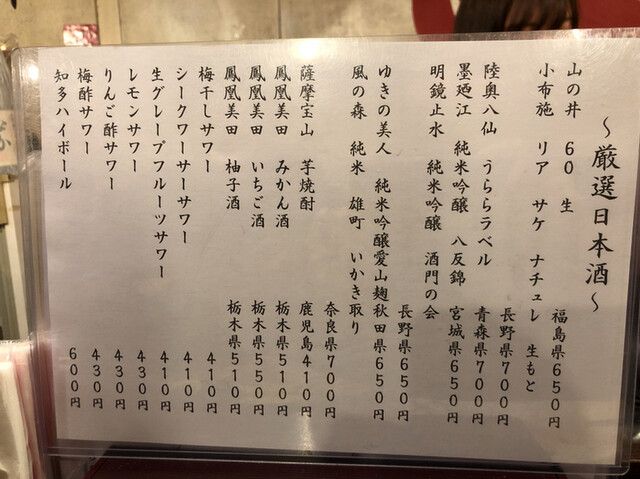 ～厳選日本酒～
山の井 60 生 福島県650円
小布施 リア サケ ナチュレ 生もと
長野県700円
陸奥八仙 うららラベル 青森県700円
墨廼江 純米吟醸 八反錦 宮城県650円
明鏡止水 純米吟醸 酒門の会
長野県650円
ゆきの美人 純米吟醸愛山麹秋田県650円
風の森 純米 雄町 いかき取り
奈良県700円
薩摩宝山 芋焼酎 鹿児島410円
鳳凰美田 みかん酒 栃木県510円
鳳凰美田 いちご酒 栃木県550円
鳳凰美田 柚子酒 栃木県510円
梅干しサワー 410円
シークワーサーサワー 410円
生グレープフルーツサワー 410円
レモンサワー 430円
りんご酢サワー 430円
梅酢サワー 430円
知多ハイボール 600円